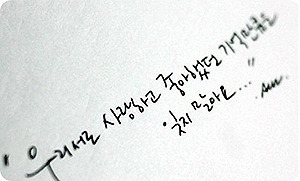 "우리서로 사랑하고 좋아했던 기억만큼은
잊지 말아요..."